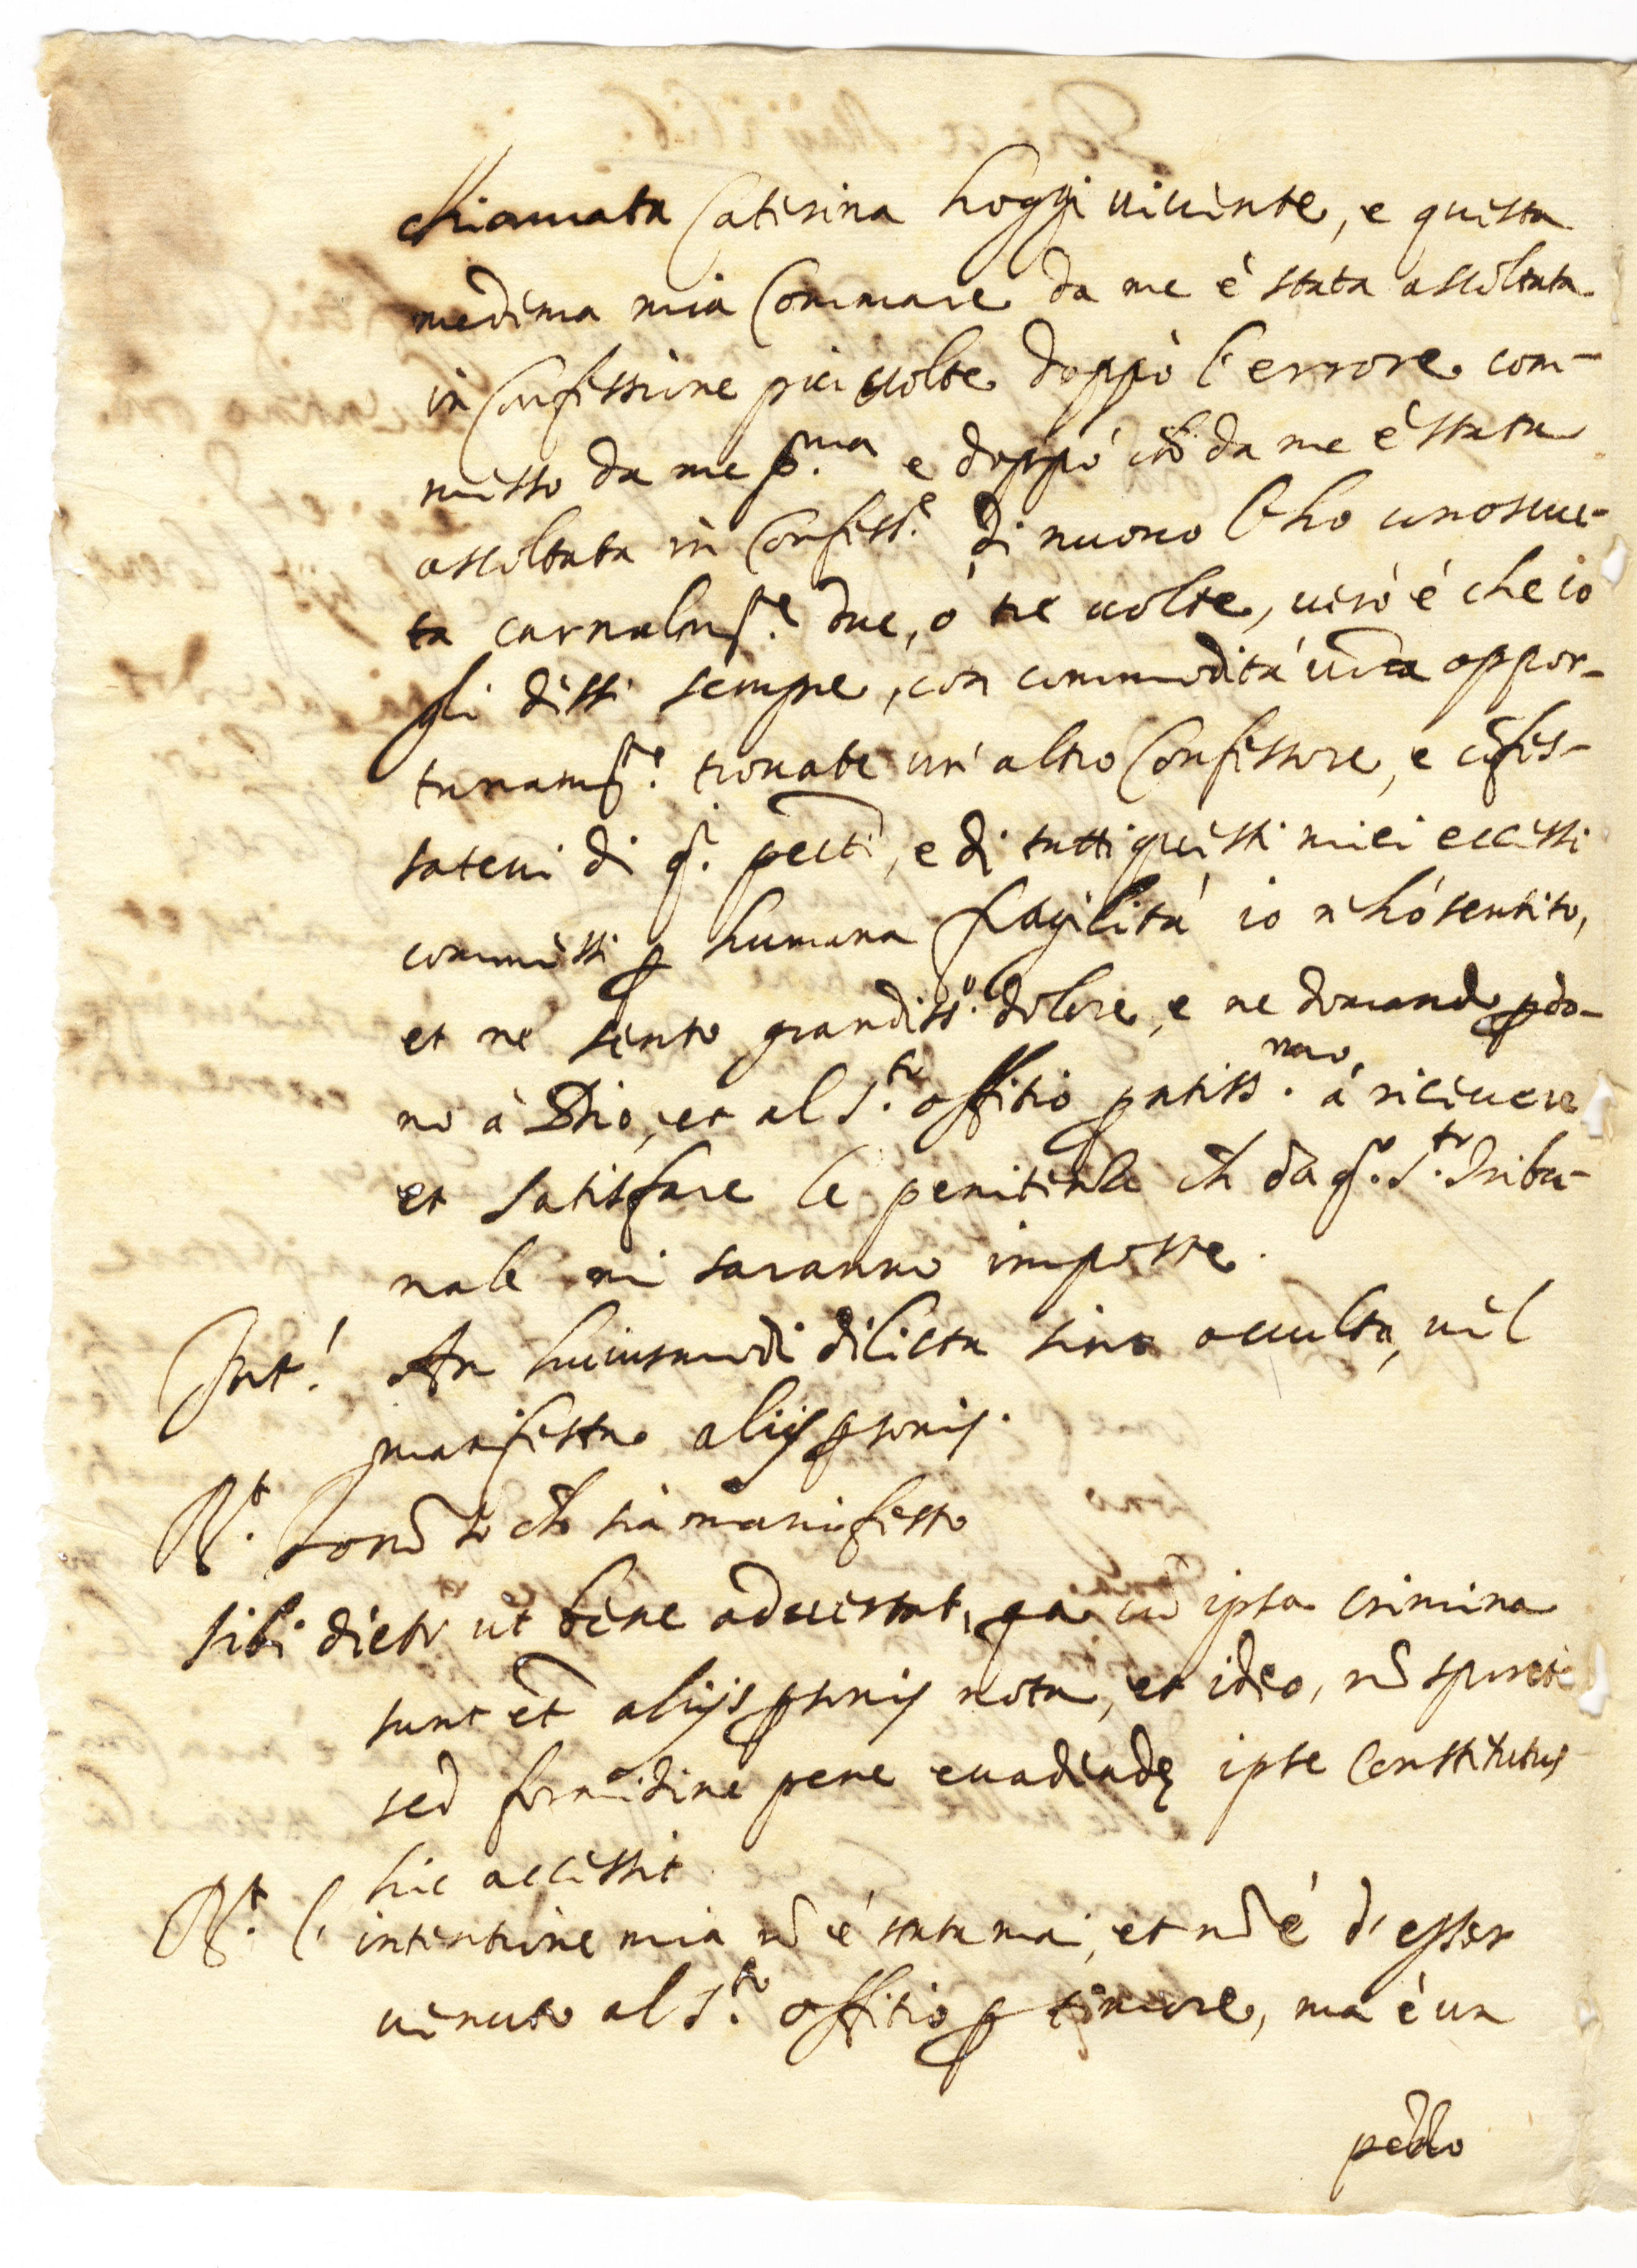 chiamata Caterina hoggi vivente, e questa
medema mia Commare da me è stata ascoltata
in Confessione piu volte doppò l'errore com-
messo da me p.ma e doppò che da me è stata
ascoltata in Confess.e di nuovo l'ho conosciu-
ta carnalm.te due, ò tre volte, verò è che io
gli dissi sempre, con commodità vra oppor-
tunam.te trovate un'altro Confessore, e cõfes-
satevi di q.i pecti, e di tutti questi miei eccessi
commessi p humana fragilità io n'hò sentito,
et ne sento grandiss.o dolore, e ne domando pdo-
no à Dio, et al S.to offitio prntiss.mo à ricevere
et satisfare le penitenze ch da q.o S.to Tribu-
nale mi saranno imposte.
Int.s An huiusmodi delicta sint occulta, vel
manifesta alijs psonis.
R.t Io nõ so che sia manifesto
sibi dicto ut bene advertat, qa cũ ipsa crimina
sunt et alijs psonis nota, et ideo, nõ sponte
sed formidine pene evadende ipse Constitutus
hic accessit
R.t l'intentione mia nõ è stata mai, et nõ è d'esser
venuto al S.to offitio p timore, ma è un